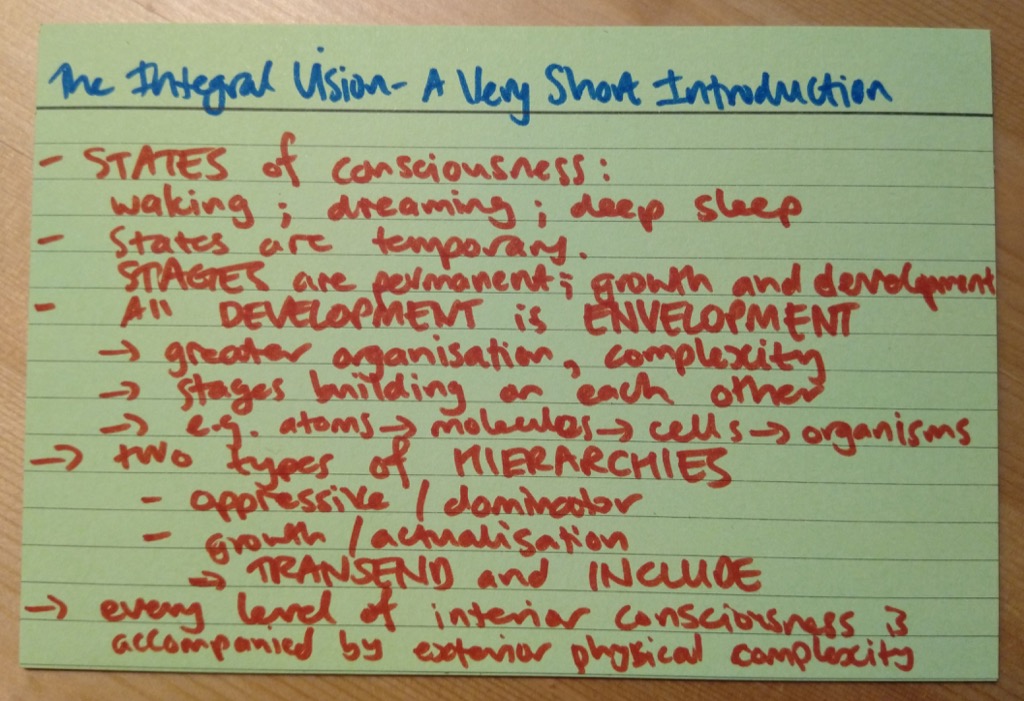 The Integral Vision - A Very Short Introduction
- STATES of consciousness:
waking ; dreaming ; deep sleep
- States are temporary.
STAGES are permanent; growth and development
- All DEVELOPMENT is ENVELOPMENT
→ greater organisation, complexity
→ stages building on each other
→ e.g. atoms → molecules → cells → organisms
→ two types of HIERARCHIES
- oppressive / dominator
- growth / actualisation
→ TRANSEND and INCLUDE
→ every level of interior consciousness is
accompanied by exterior physical complexity